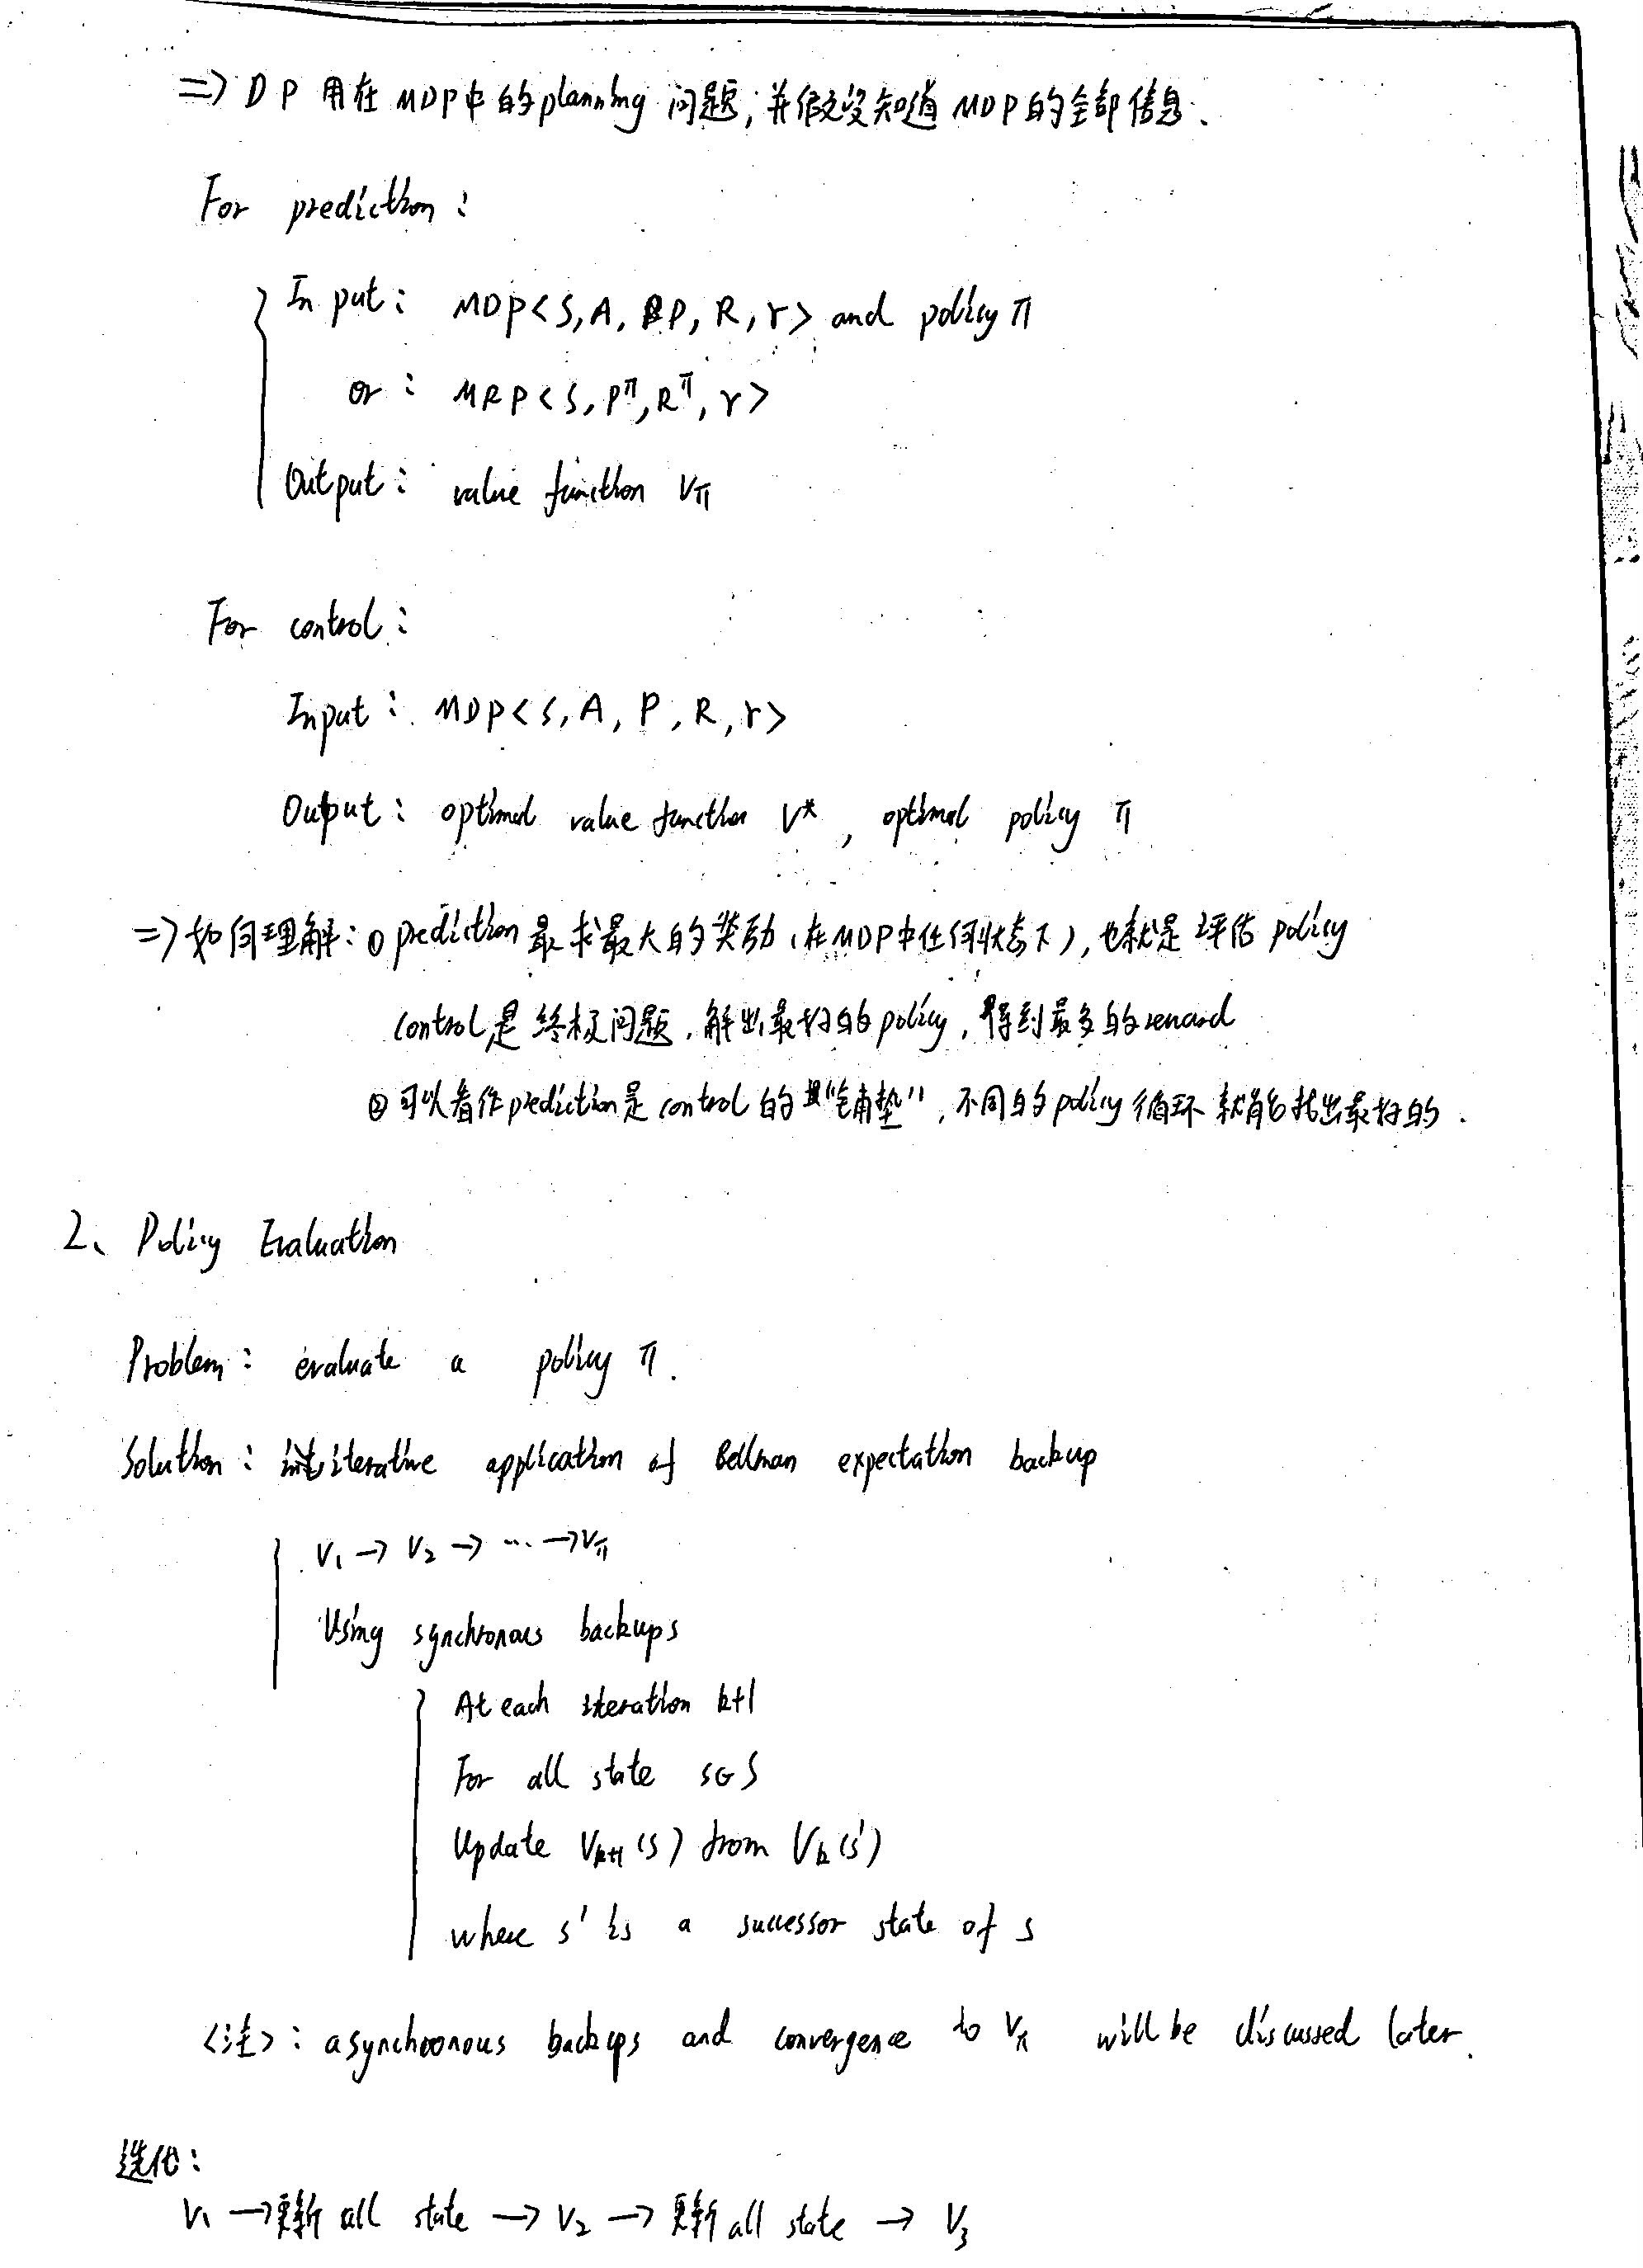 => DP 用在 MDP中的planning 问题,并假设知道 MDP的全部信息.
For prediction :
Input : MDP<S, A, P, R, γ> and policy π
or : MRP<S, P^π, R^π, γ>
Output : value function Vπ
For control :
Input : MDP<S, A, P, R, γ>
Output : optimal value function V* , optimal policy π
=> 如何理解 : ① prediction 是求最大的奖励 (在MDP中任何状态下), 也就是 评估 policy
control是 终极问题, 解出最好的policy, 得到最多的reward
② 可以看作prediction是 control 的 "铺垫", 不同的policy 循环 就能找出最好的.
2、Policy Evaluation
Problem : evaluate a policy π.
Solution : iterative application of Bellman expectation backup
V1 → V2 → ... → Vπ
Using synchronous backups
At each iteration k+1
For all state s∈S
Update Vk+1(s) from Vk(s')
where s' is a successor state of s
<注> : asynchronous backups and convergence to Vπ will be discussed later.
迭代 :
V1 → 更新 all state → V2 → 更新 all state → V3